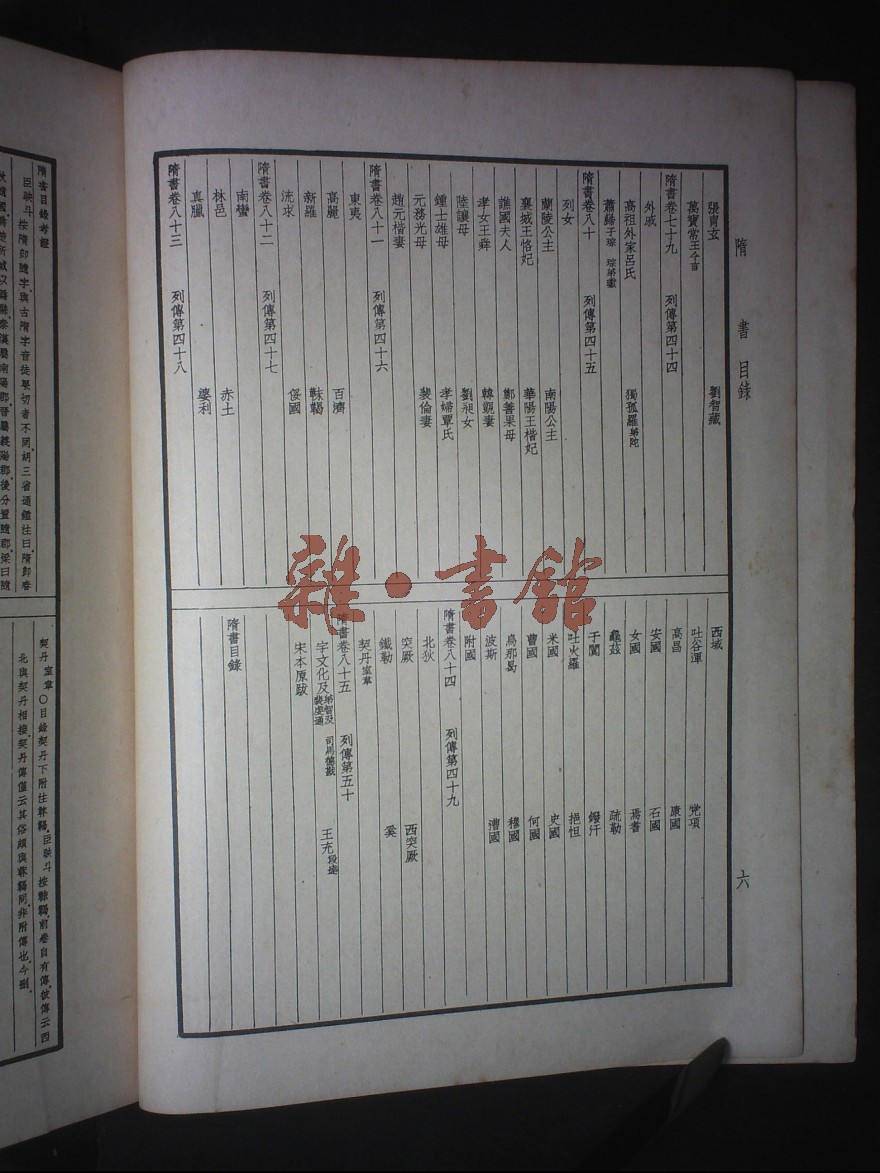 隋書目錄
六
張胄玄 劉智藏
萬寶常 王令言
隋書卷七十九 列傳第四十四
外戚
高祖外家呂氏 獨孤羅 弟陀
蕭巋 子琮 琮弟瓛
隋書卷八十 列傳第四十五
列女
蘭陵公主 南陽公主
襄城王恪妃 華陽王楷妃
譙國夫人 鄭善果母
孝女王舜 韓覬妻
陸讓母 劉昶女
鍾士雄母 孝婦覃氏
元務光母 裴倫妻
趙元楷妻
隋書卷八十一 列傳第四十六
東夷
高麗 百濟
新羅 靺鞨
流求 倭國
隋書卷八十二 列傳第四十七
南蠻
林邑 赤土
真臘 婆利
隋書卷八十三 列傳第四十八
西域
吐谷渾 党項
高昌 康國
安國 石國
女國 焉耆
龜茲 疏勒
于闐 鏺汗
吐火羅 挹怛
米國 史國
曹國 何國
烏那曷 穆國
波斯 漕國
附國
隋書卷八十四 列傳第四十九
北狄
突厥 西突厥
鐵勒 奚
契丹 室韋
隋書卷八十五 列傳第五十
宇文化及 弟智及 司馬德戡 裴虔通 王充 段達
宋本原跋
隋書目錄
雜·書館
隋書目錄考證
契丹 室韋〇目錄契丹下附注靺鞨臣映斗按靺鞨前卷自有傳此傳云西
北與契丹相接契丹傳僅云其俗頗與靺鞨同非附傳也今刪